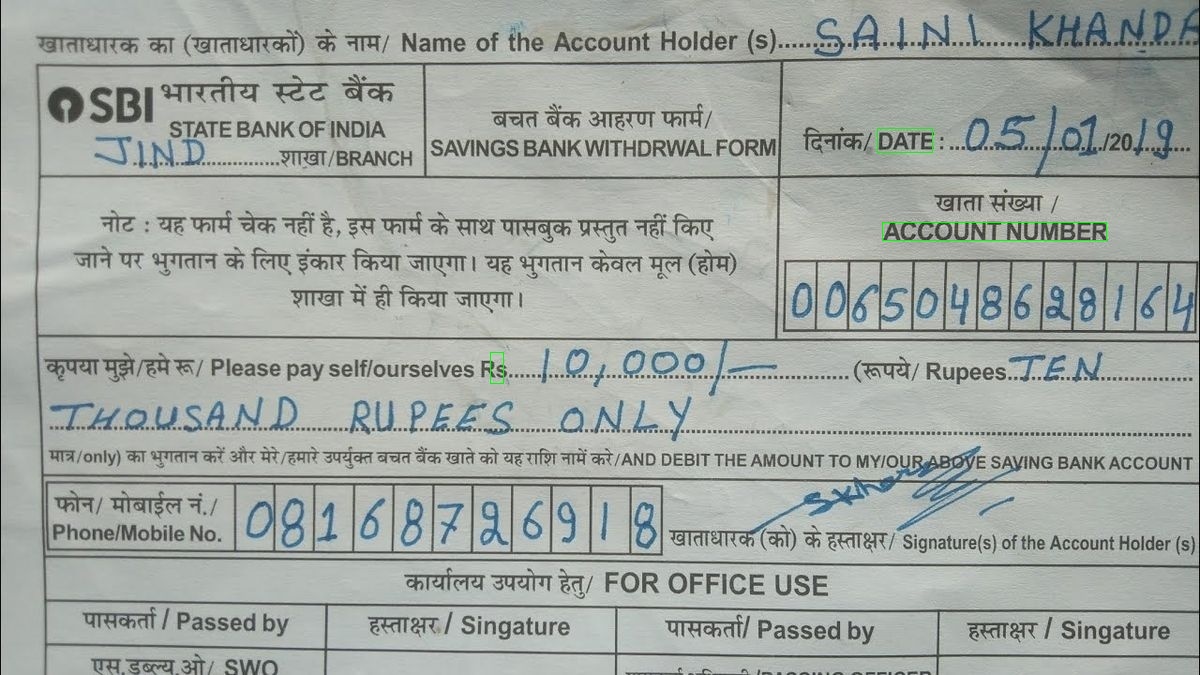 खाताधारक का (खाताधारकों) के नाम/ Name of the Account Holder (s)......SAINI KHANDA
SBI भारतीय स्टेट बैंक
STATE BANK OF INDIA
JIND............शाखा/BRANCH
बचत बैंक आहरण फार्म/
SAVINGS BANK WITHDRWAL FORM
दिनांक/ DATE : ...05/01/2019
नोट : यह फार्म चेक नहीं है, इस फार्म के साथ पासबुक प्रस्तुत नहीं किए
जाने पर भुगतान के लिए इंकार किया जाएगा। यह भुगतान केवल मूल (होम)
शाखा में ही किया जाएगा।
खाता संख्या /
ACCOUNT NUMBER
0065048628164
कृपया मुझे/हमे रू/ Please pay self/ourselves Rs....10,000/-............(रूपये/ Rupees..TEN
THOUSAND RUPEES ONLY
मात्र/only) का भुगतान करें और मेरे/हमारे उपर्युक्त बचत बैंक खाते को यह राशि नामें करे/AND DEBIT THE AMOUNT TO MY/OUR ABOVE SAVING BANK ACCOUNT
फोन/ मोबाईल नं./
Phone/Mobile No.
08168726918
खाताधारक (को) के हस्ताक्षर/ Signature(s) of the Account Holder (s)
कार्यालय उपयोग हेतु/ FOR OFFICE USE
पासकर्ता / Passed by हस्ताक्षर / Singature पासकर्ता/ Passed by हस्ताक्षर / Singature
एस.डब्ल्य.ओ/ SWO